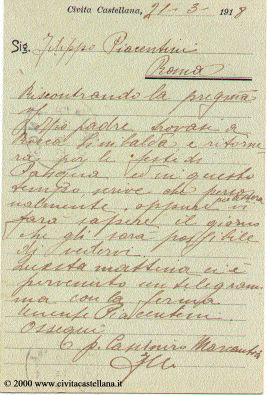 Civita Castellana, 21-3-1918
Sig. Filippo Piacentini
Roma
Riscontrando la pregma
Mio padre trovasi a
Rocca Sinibalda e ritorne-
rà per le feste di
Pasqua e in questo
tempo scrive che perso-
nalmente, oppure per lettera vi
farà sapere il giorno
che gli sarà possibile
di vedervi
Questa mattina ci è
pervenuto un telegram-
ma con la firma
Piacentini
Ossequi
© 2000 www.civitacastellana.it